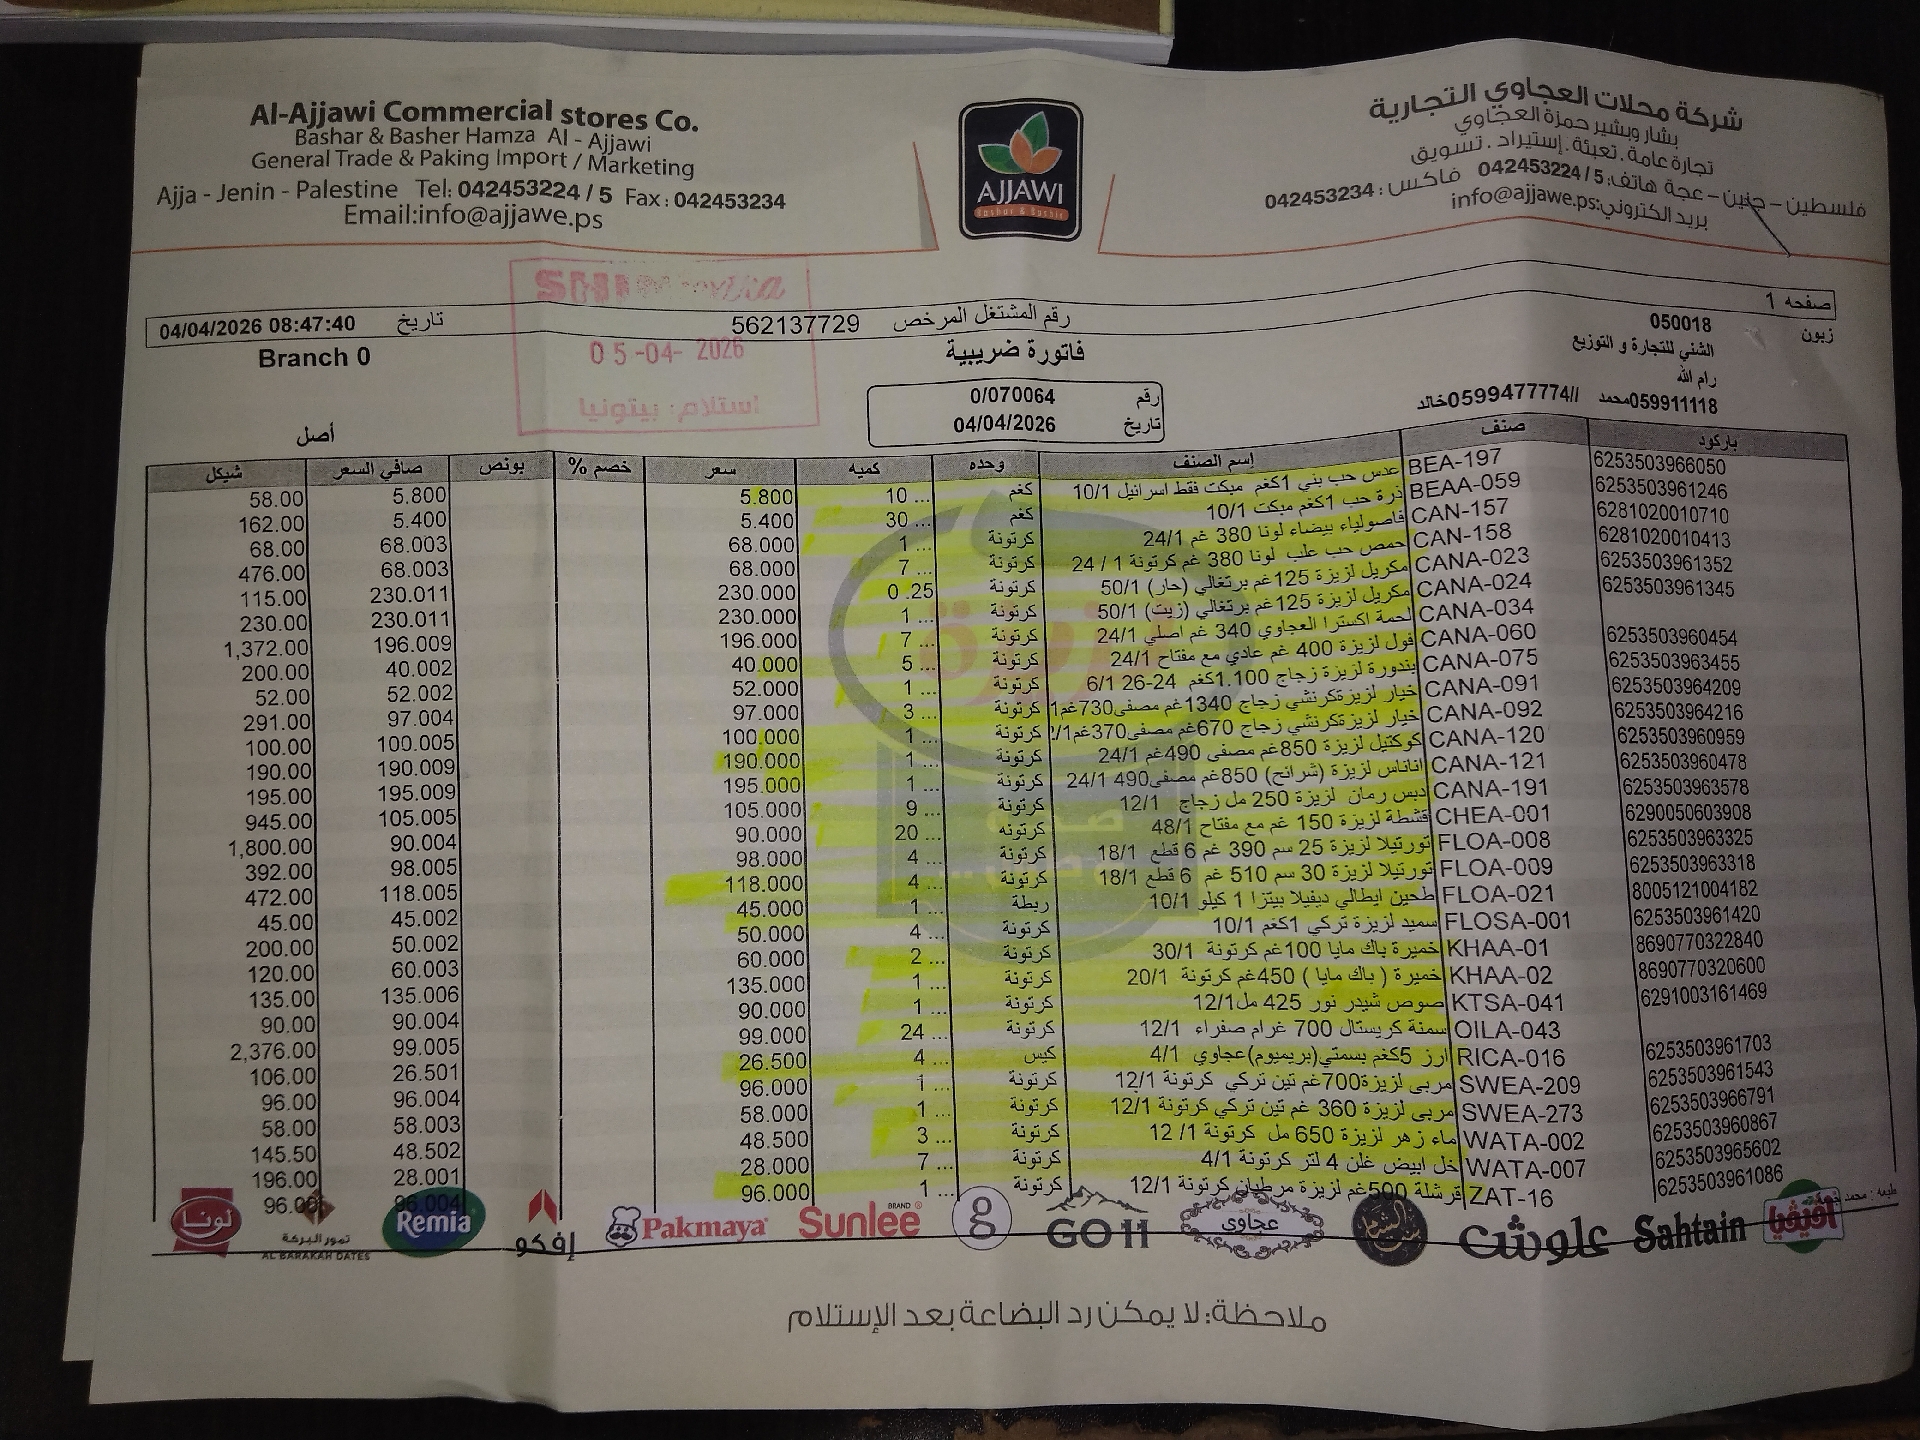 Al-Ajjawi Commercial stores Co.
Bashar & Basher Hamza Al - Ajjawi
General Trade & Paking Import / Marketing
Ajja - Jenin - Palestine Tel: 042453224 / 5 Fax : 042453234
Email:info@ajjawe.ps
AJJAWI
Bashar & Bashir
شركة محلات العجاوي التجارية
بشار وبشير حمزة العجاوي
تجارة عامة . تعبئة . إستيراد . تسويق
فلسطين – جنين – عجة هاتف: 5 / 042453224 فاكس : 042453234
بريد الكتروني:info@ajjawe.ps
صفحه 1
رقم المشتغل المرخص 562137729
تاريخ 04/04/2026 08:47:40
زبون 050018
الشني للتجارة و التوزيع
رام الله
059911118محمد //0599477774خالد
فاتورة ضريبية
Branch 0
05-04- 2026
استلام: بيتونيا
رقم 0/070064
تاريخ 04/04/2026
أصل
باركود صنف إسم الصنف وحده كميه سعر خصم % بونص صافي السعر شيكل
6253503966050 BEA-197 عدس حب بني 1كغم مبكت فقط اسرائيل 10/1 كغم 10 ... 5.800 5.800 58.00
6253503961246 BEAA-059 ذرة حب 1كغم مبكت 10/1 كغم 30 ... 5.400 5.400 162.00
6281020010710 CAN-157 فاصولياء بيضاء لونا 380 غم 24/1 كرتونة 1 ... 68.000 68.003 68.00
6281020010413 CAN-158 حمص حب علب لونا 380 غم كرتونة 1 / 24 كرتونة 7 ... 68.000 68.003 476.00
6253503961352 CANA-023 مكريل لزيزة 125غم برتغالي (حار) 50/1 كرتونة 0.25 230.000 230.011 115.00
6253503961345 CANA-024 مكريل لزيزة 125غم برتغالي (زيت) 50/1 كرتونة 1 ... 230.000 230.011 230.00
CANA-034 لحمة اكسترا العجاوي 340 غم اصلي 24/1 كرتونة 7 ... 196.000 196.009 1,372.00
6253503960454 CANA-060 فول لزيزة 400 غم عادي مع مفتاح 24/1 كرتونة 5 ... 40.000 40.002 200.00
6253503963455 CANA-075 بندورة لزيزة زجاج 1.100كغم 24-26 6/1 كرتونة 1 ... 52.000 52.002 52.00
6253503964209 CANA-091 خيار لزيزةكرنشي زجاج 1340غم مصفى730غم1 كرتونة 3 ... 97.000 97.004 291.00
6253503964216 CANA-092 خيار لزيزةكرنشي زجاج 670غم مصفى370غم1/ كرتونة 1 ... 100.000 100.005 100.00
6253503960959 CANA-120 كوكتيل لزيزة 850غم مصفى 490غم 24/1 كرتونة 1 ... 190.000 190.009 190.00
6253503960478 CANA-121 اناناس لزيزة (شرائح) 850غم مصفى490 24/1 كرتونة 1 ... 195.000 195.009 195.00
6253503963578 CANA-191 دبس رمان لزيزة 250 مل زجاج 12/1 كرتونة 9 ... 105.000 105.005 945.00
6290050603908 CHEA-001 قشطة لزيزة 150 غم مع مفتاح 48/1 كرتونه 20 ... 90.000 90.004 1,800.00
6253503963325 FLOA-008 تورتيلا لزيزة 25 سم 390 غم 6 قطع 18/1 كرتونة 4 ... 98.000 98.005 392.00
6253503963318 FLOA-009 تورتيلا لزيزة 30 سم 510 غم 6 قطع 18/1 كرتونة 4 ... 118.000 118.005 472.00
8005121004182 FLOA-021 طحين ايطالي ديفيلا بيتزا 1 كيلو 10/1 ربطة 1 ... 45.000 45.002 45.00
6253503961420 FLOSA-001 سميد لزيزة تركي 1كغم 10/1 كرتونة 4 ... 50.000 50.002 200.00
8690770322840 KHAA-01 خميرة باك مايا 100غم كرتونة 30/1 كرتونة 2 ... 60.000 60.003 120.00
8690770320600 KHAA-02 خميرة ( باك مايا ) 450غم كرتونة 20/1 كرتونة 1 ... 135.000 135.006 135.00
6291003161469 KTSA-041 صوص شيدر نور 425 مل12/1 كرتونة 1 ... 90.000 90.004 90.00
OILA-043 سمنة كريستال 700 غرام صفراء 12/1 كرتونة 24 ... 99.000 99.005 2,376.00
6253503961703 RICA-016 ارز 5كغم بسمتي(بريميوم)عجاوي 4/1 كيس 4 ... 26.500 26.501 106.00
6253503961543 SWEA-209 مربى لزيزة700غم تين تركي كرتونة 12/1 كرتونة 1 ... 96.000 96.004 96.00
6253503966791 SWEA-273 مربى لزيزة 360 غم تين تركي كرتونة 12/1 كرتونة 1 ... 58.000 58.003 58.00
6253503960867 WATA-002 ماء زهر لزيزة 650 مل كرتونة 1/ 12 كرتونة 3 ... 48.500 48.502 145.50
6253503965602 WATA-007 خل ابيض غلن 4 لتر كرتونة 4/1 كرتونة 7 ... 28.000 28.001 196.00
6253503961086 ZAT-16 قرشلة 500غم لزيزة مرطبان كرتونة 12/1 كرتونة 1 ... 96.000 96.004 96.00
لونا
تمور البركة
AL BARAKAH DATES
Remia
إفكو
Pakmaya
Sunlee BRAND
g
GO11
عجاوي
علوش
Sahtain
ملاحظة: لا يمكن رد البضاعة بعد الإستلام